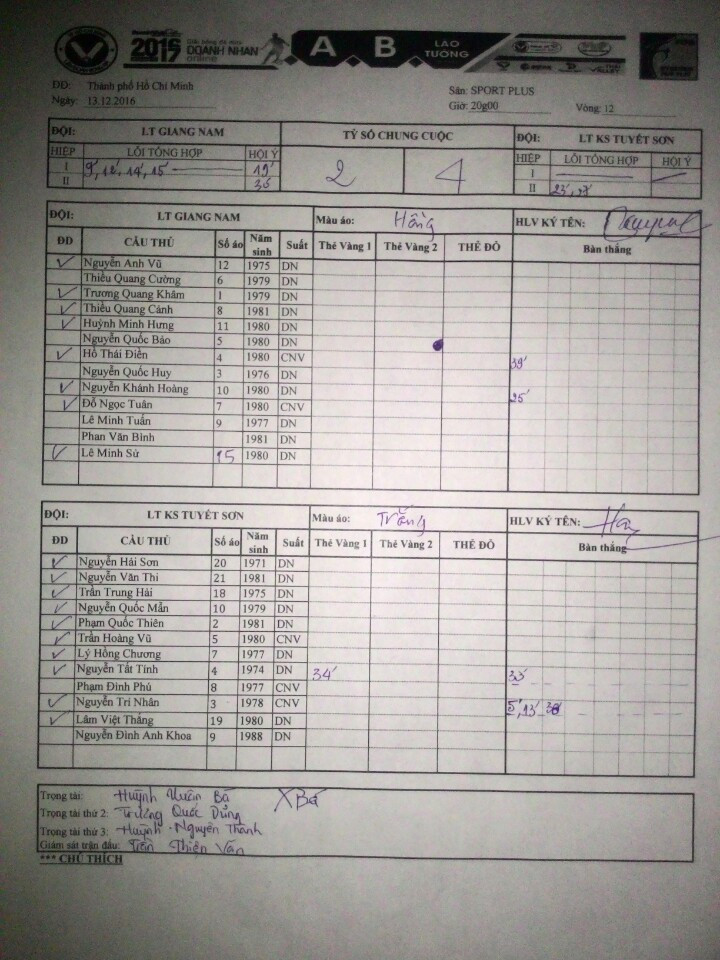 2016 17 DOANH NHAN online A B LAO TUONG
DĐ: Thành phố Hồ Chí Minh Sân: SPORT PLUS
Ngày: 13.12.2016 Giờ: 20g00 Vòng: 12
ĐỘI: LT GIANG NAM TỶ SỐ CHUNG CUỘC ĐỘI: LT KS TUYẾT SƠN
HIỆP LỖI TỔNG HỢP HỘI Ý 2 4 HIỆP LỖI TỔNG HỢP HỘI Ý
I 9', 12', 14', 15' 19' I
II 35' II 23',
ĐỘI: LT GIANG NAM Màu áo: Hồng HLV KÝ TÊN:
ĐD CẦU THỦ Số áo Năm sinh Suất Thẻ Vàng 1 Thẻ Vàng 2 THẺ ĐỎ Bàn thắng
Nguyễn Anh Vũ 12 1975 DN
Thiều Quang Cường 6 1979 DN
Trương Quang Khâm 1 1979 DN
Thiều Quang Cảnh 8 1981 DN
Huỳnh Minh Hưng 11 1980 DN
Nguyễn Quốc Bảo 5 1980 DN
Hồ Thái Điền 4 1980 CNV 39'
Nguyễn Quốc Huy 3 1976 DN
Nguyễn Khánh Hoàng 10 1980 DN
Đỗ Ngọc Tuân 7 1980 CNV 25'
Lê Minh Tuấn 9 1977 DN
Phan Văn Bình 1981 DN
Lê Minh Sử 15 1980 DN
ĐỘI: LT KS TUYẾT SƠN Màu áo: Trắng HLV KÝ TÊN:
ĐD CẦU THỦ Số áo Năm sinh Suất Thẻ Vàng 1 Thẻ Vàng 2 THẺ ĐỎ Bàn thắng
Nguyễn Hải Sơn 20 1971 DN
Nguyễn Văn Thi 21 1981 DN
Trần Trung Hải 18 1975 DN
Nguyễn Quốc Mẫn 10 1979 DN
Phạm Quốc Thiên 2 1981 DN
Trần Hoàng Vũ 5 1980 CNV
Lý Hồng Chương 7 1977 DN
Nguyễn Tất Tính 4 1974 DN 34' 33'
Phạm Đình Phú 8 1977 CNV
Nguyễn Trí Nhân 3 1978 CNV 5', 13'
Lâm Việt Thắng 19 1980 DN
Nguyễn Đình Anh Khoa 9 1988 DN
Trọng tài: Huỳnh Xuân Bá XBá
Trọng tài thứ 2: Trương Quốc Dũng
Trọng tài thứ 3: Huỳnh Nguyên Thành
Giám sát trận đấu: Trần Thiện Văn
*** CHÚ THÍCH